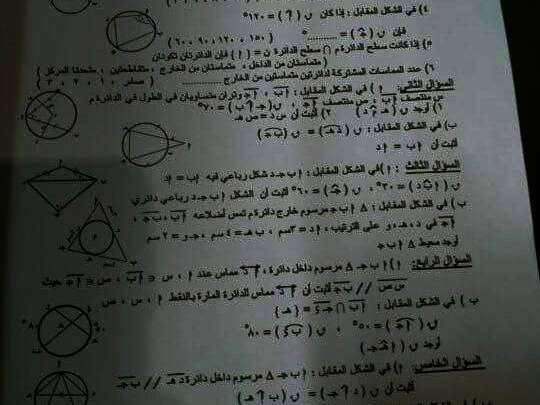 ٤) في الشكل المقابل : إذا كان ق (أ) = ١٢٠°
فإن ق (حـ) = ............°
( ١٥٠ ، ١٢٠ ، ٩٠ ، ٦٠ )
٥) إذا كانت سطح الدائرة م ∩ سطح الدائرة ن = { أ } فإن الدائرتان تكونان
( متماستان من الداخل ، متماستان من الخارج ، متقاطعتين ، متحدتا المركز )
٦) عدد المماسات المشتركة لدائرتين متماستين من الخارج ............ ( صفر ، ١ ، ٢ ، ٣ )
السؤال الثاني: أ) في الشكل المقابل : أب ، أجـ وتران متساويان في الطول في الدائرة م
س منتصف أب ، ص منتصف أجـ ، ق (جـ أ ب) = ٧٠°
١) أوجد ق (د م هـ) ٢) أثبت أن س د = ص هـ
ب) في الشكل المقابل :
أثبت أن أب = أد
السؤال الثالث : أ) في الشكل المقابل : أ ب جـ د شكل رباعي فيه أب = أد
ق (أ ب د) = ٣٠° ، ق (جـ) = ٦٠° أثبت أن الشكل أ ب جـ د رباعي دائري
ب) في الشكل المقابل : Δ أ ب جـ مرسوم خارج دائرة م تمس أضلاعه أب ، ب جـ ،
أجـ في د ، هـ ، و على الترتيب ، أ د = ٣سم ، ب هـ = ٤ سم ، جـ و = ٢ سم
أوجد محيط Δ أ ب جـ
السؤال الرابع: أ) أ ب جـ Δ مرسوم داخل دائرة ، أد مماس عند أ ، س ∈ أب ، ص ∈ أجـ حيث
س ص // ب جـ أثبت أن أد مماس للدائرة المارة بالنقط أ ، س ، ص
ب ) في الشكل المقابل : أب ∩ جـ د = { هـ }
ق (أجـ) = ٥٠° ، ق (ب د) = ٨٠°
أوجد ق (أ هـ جـ)
السؤال الخامس: أ) في الشكل المقابل : أ ب جـ Δ مرسوم داخل دائرة د هـ // ب جـ
أثبت أن ق (د أ جـ) = ق (ب أ هـ)